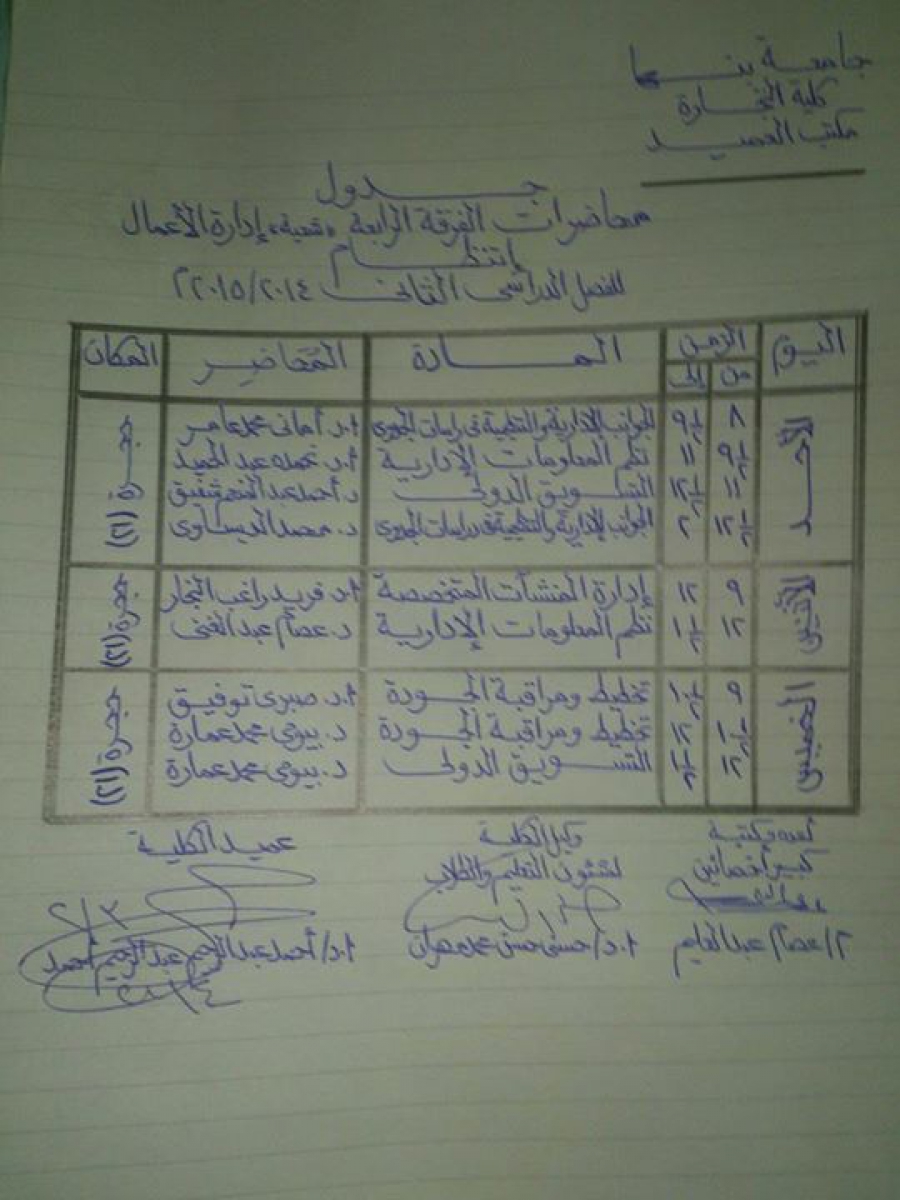 جامعة بنها
كلية التجارة
مكتب العميد
جدول
محاضرات الفرقة الرابعة "شعبة" إدارة الأعمال
إنتظام
للفصل الدراسى الثانى ٢٠١٥/٢٠١٤م
اليوم الزمن المادة المحاضر المكان
من إلى
الأحد ٨ ٩½ الجوانب الإدارية والتنظيمية فى دراسات الجدوى ا.د. أمانى محمد عامر حجرة (٢١)
٩½ ١١ نظم المعلومات الإدارية ا.د. عبد الحميد
١١ ١٢½ التسويق الدولى د. أحمد عبد المنعم شفيق
١٢½ ٢ الجوانب الإدارية والتنظيمية فى دراسات الجدوى د. محمد
الأثنين ٩ ١٢ إدارة المنشآت المتخصصة ا.د. فريد راغب النجار حجرة (٢١)
١٢ ١½ نظم المعلومات الإدارية د. عصام عبد الغنى
الخميس ٩ ١٠½ تخطيط ومراقبة الجودة ا.د. صبرى توفيق حجرة (٢١)
١٠½ ١٢ تخطيط ومراقبة الجودة د. بيومى محمد عمارة
١٢ ١½ التسويق الدولى د. بيومى محمد عمارة
أعده وكتبه وكيل الكلية عميد الكلية
كبير أخصائين لشئون التعليم والطلاب
٢/عصام عبد الحليم ا.د/ حسنى حسن محمد مهران ا.د/ أحمد عبد الرحيم عبد الرحيم أحمد